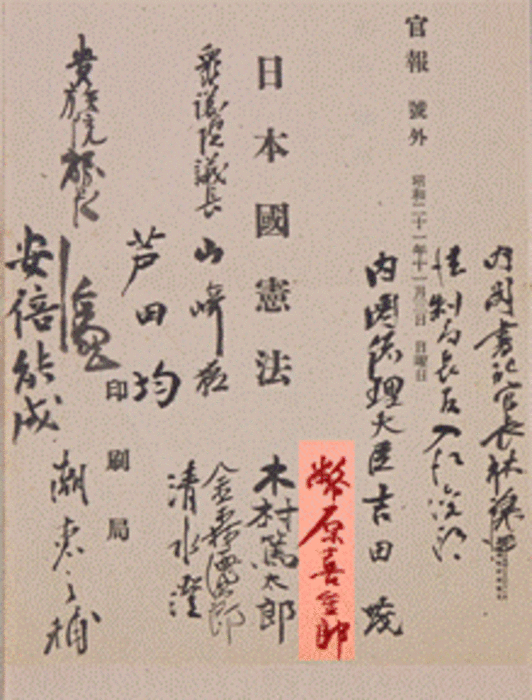 官報 號外 昭和二十一年十一月三日 日曜日
日本國憲法
内閣書記官長 林 譲治
法制局長官 入江俊郎
内閣総理大臣 吉田 茂
幣原喜重郎
木村篤太郎
金森徳次郎
清水澄
衆議院議長 山崎猛
芦田均
貴族院
安倍能成
潮恵之輔
印刷局